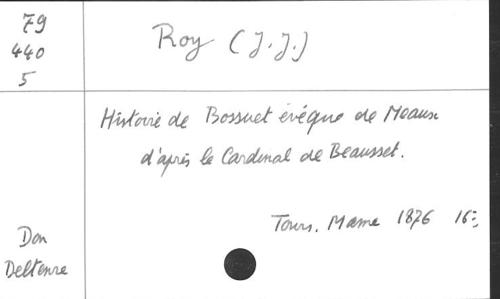 79
440
5
Roy (J.J.)
Histoire de Bossuet évêque de Meaux
d'après le Cardinal de Beausset.
Tours. Mame 1876 16°;
Don
Deltenre